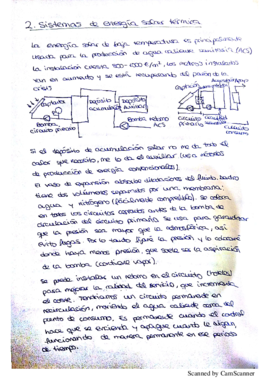 2. Sistemas de energía solar térmica
La energía solar de baja temperatura es principalmente
usada para la producción de agua caliente sanitaria (ACS)
La instalación cuesta 500-1500 €/m², los metros instalados
van en aumento y se está recuperando del parón de la
crisis
Captador
Depósito acumulador
Depósito auxiliar
Bomba circuito primario
Bomba retorno ACS
captador
circuito primario
circuito
circuito consumo
Si el depósito de acumulación solar no me da todo el
calor que necesito, me lo da el auxiliar (uso métodos
de producción de energía convencionales)
El vaso de expansión absorbe dilataciones del fluido. Dentro
tiene dos volúmenes separados por una membrana:
agua y nitrógeno (fácilmente compresible). Se coloca
en todos los circuitos cerrados antes de la bomba de
circulación del circuito primario. Se usa para garantizar
que la presión sea mayor que la atmosférica, así
evito fugas. Por lo tanto fijaré la presión y lo colocaré
donde haya menos presión, que suele ser la aspiración
de la bomba (contiene vapor).
Se puede instalar un retorno en el circuito (hoteles)
para mejorar la calidad del servicio, que incrementa
el coste. Tendríamos un circuito permanente en
recirculación, moviendo el agua caliente cerca del
punto de consumo. Es permanente cuando el control
hace que se encienda y apague cuando le digan,
funcionando de manera permanente en ese período
de tiempo.
Scanned by CamScanner